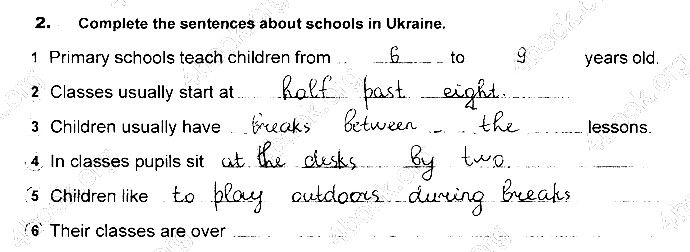 2. Complete the sentences about schools in Ukraine.
1 Primary schools teach children from 6 to 9 years old.
2 Classes usually start at half past eight.
3 Children usually have breaks between the lessons.
4 In classes pupils sit at the desks by two.
5 Children like to play outdoors during breaks
6 Their classes are over